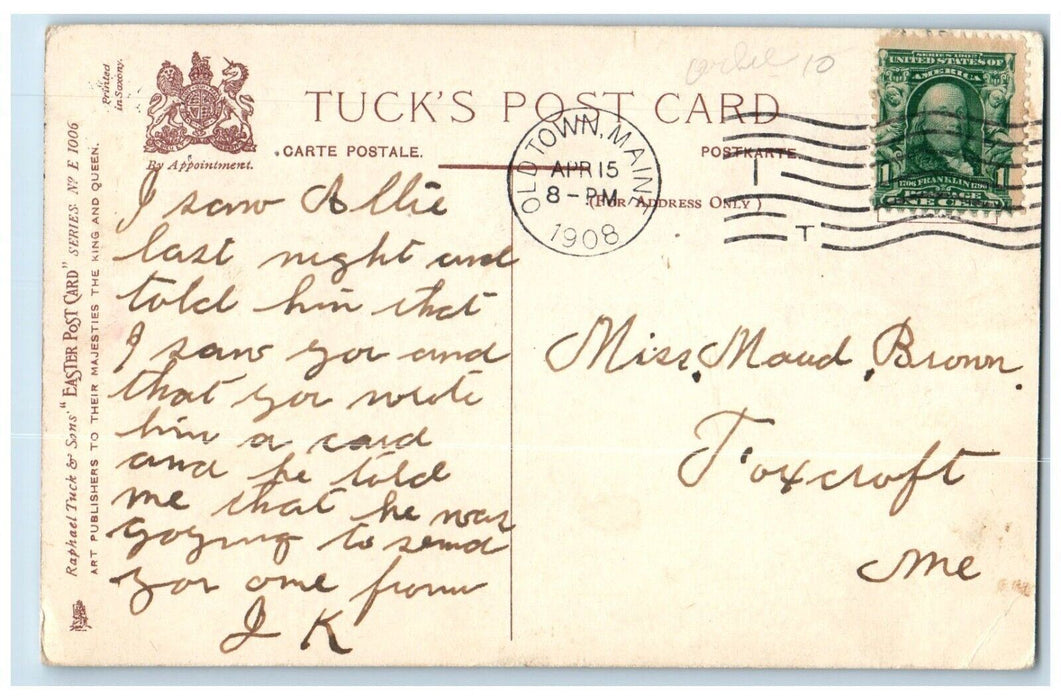 Printed
in Saxony.
By Appointment.
TUCK'S POST CARD
CARTE POSTALE.
POSTKARTE.
(FOR ADDRESS ONLY)
10
OLD TOWN, MAINE
APR 15
8 - PM
1908
T
SERIES 1902
UNITED STATES OF
AMERICA
1 1706 FRANKLIN 1790 1
ONE CENT
Raphael Tuck & Sons' "EASTER POST CARD" SERIES Nº E 1006
ART PUBLISHERS TO THEIR MAJESTIES THE KING AND QUEEN.
I saw Allie
last night and
told him that
I saw you and
that you wrote
him a card
and he told
me that he was
goying to send
you one from
J K
Miss. Maud Brown.
Foxcroft
Me